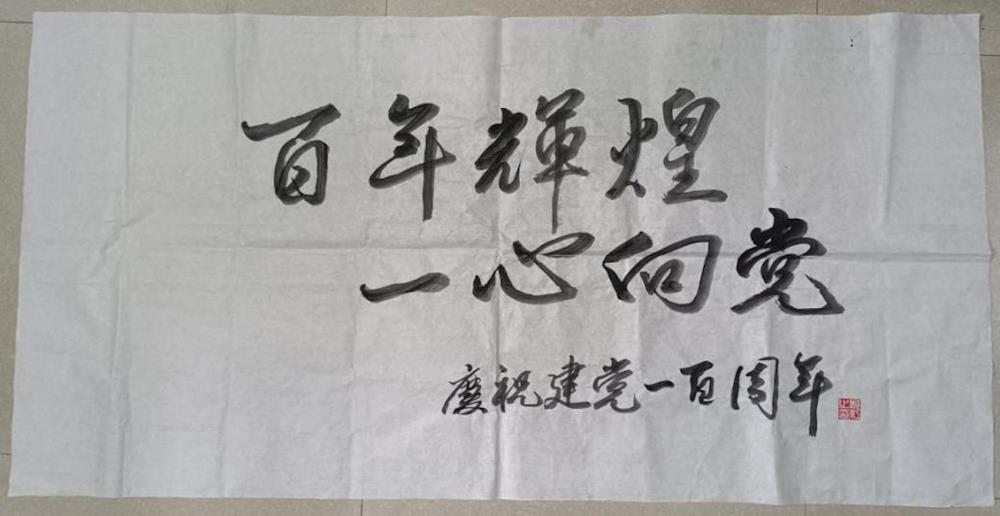 百年輝煌
一心向党
慶祝建党一百周年